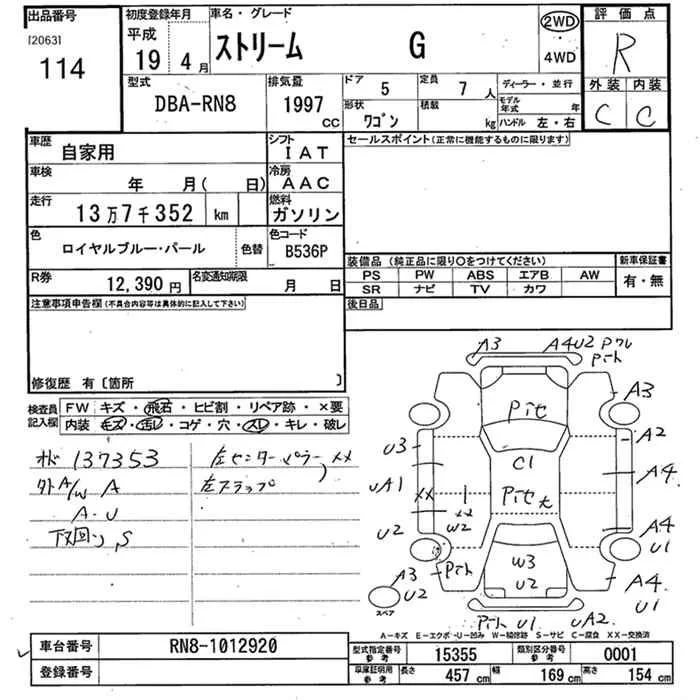 出品番号
[2063]
114
初度登録年月
平成
19 4月
車名・グレード
ストリーム G
2WD
・
4WD
評価点
R
外装 内装
C C
型式
DBA-RN8
排気量
1997
CC
ドア 5
定員 7 人
形状 ワゴン
積載 kg
ディーラー・並行
モデル年式 年
ハンドル 左・右
車歴
自家用
シフト
IAT
車検
年 月( 日)
冷房
AAC
走行
13万7千352 km
燃料
ガソリン
色
ロイヤルブルー・パール
色替
色コード
B536P
R券
12,390 円
名変通知期限
月 日
セールスポイント(正常に機能するものに限ります)
装備品(純正品に限り○をつけてください)
新車保証書
PS PW ABS エアB AW
SR ナビ TV カワ
有・無
後日品
注意事項申告欄(不具合内容等は具体的に記入して下さい)
修復歴 有〔箇所 〕
検査員記入欄
FW キズ・飛石・ヒビ割・リペア跡・×要
内装 キズ・汚レ・コゲ・穴・スレ・キレ・破レ
137353
外A/W A
A・U
下回り, S
左センターピラー XX
左フラップ
A3
A4U2
Pクル
Pit
A3
A2
A4
A4
U1
A4
U1
Pit
C1
Pit
U3
UA1
XX
XX
W2
U2
Pit
A3
U2
スペア
W3
U2
Pit U1
UA2
A-キズ E-エクボ U-凹み W-補修跡 S-サビ C-腐食 XX-交換済
車台番号
RN8-1012920
登録番号
型式指定番号
参考
15355
類別区分番号
参考
0001
車庫証明用
参考
長さ 457 cm
幅 169 cm
高さ 154 cm